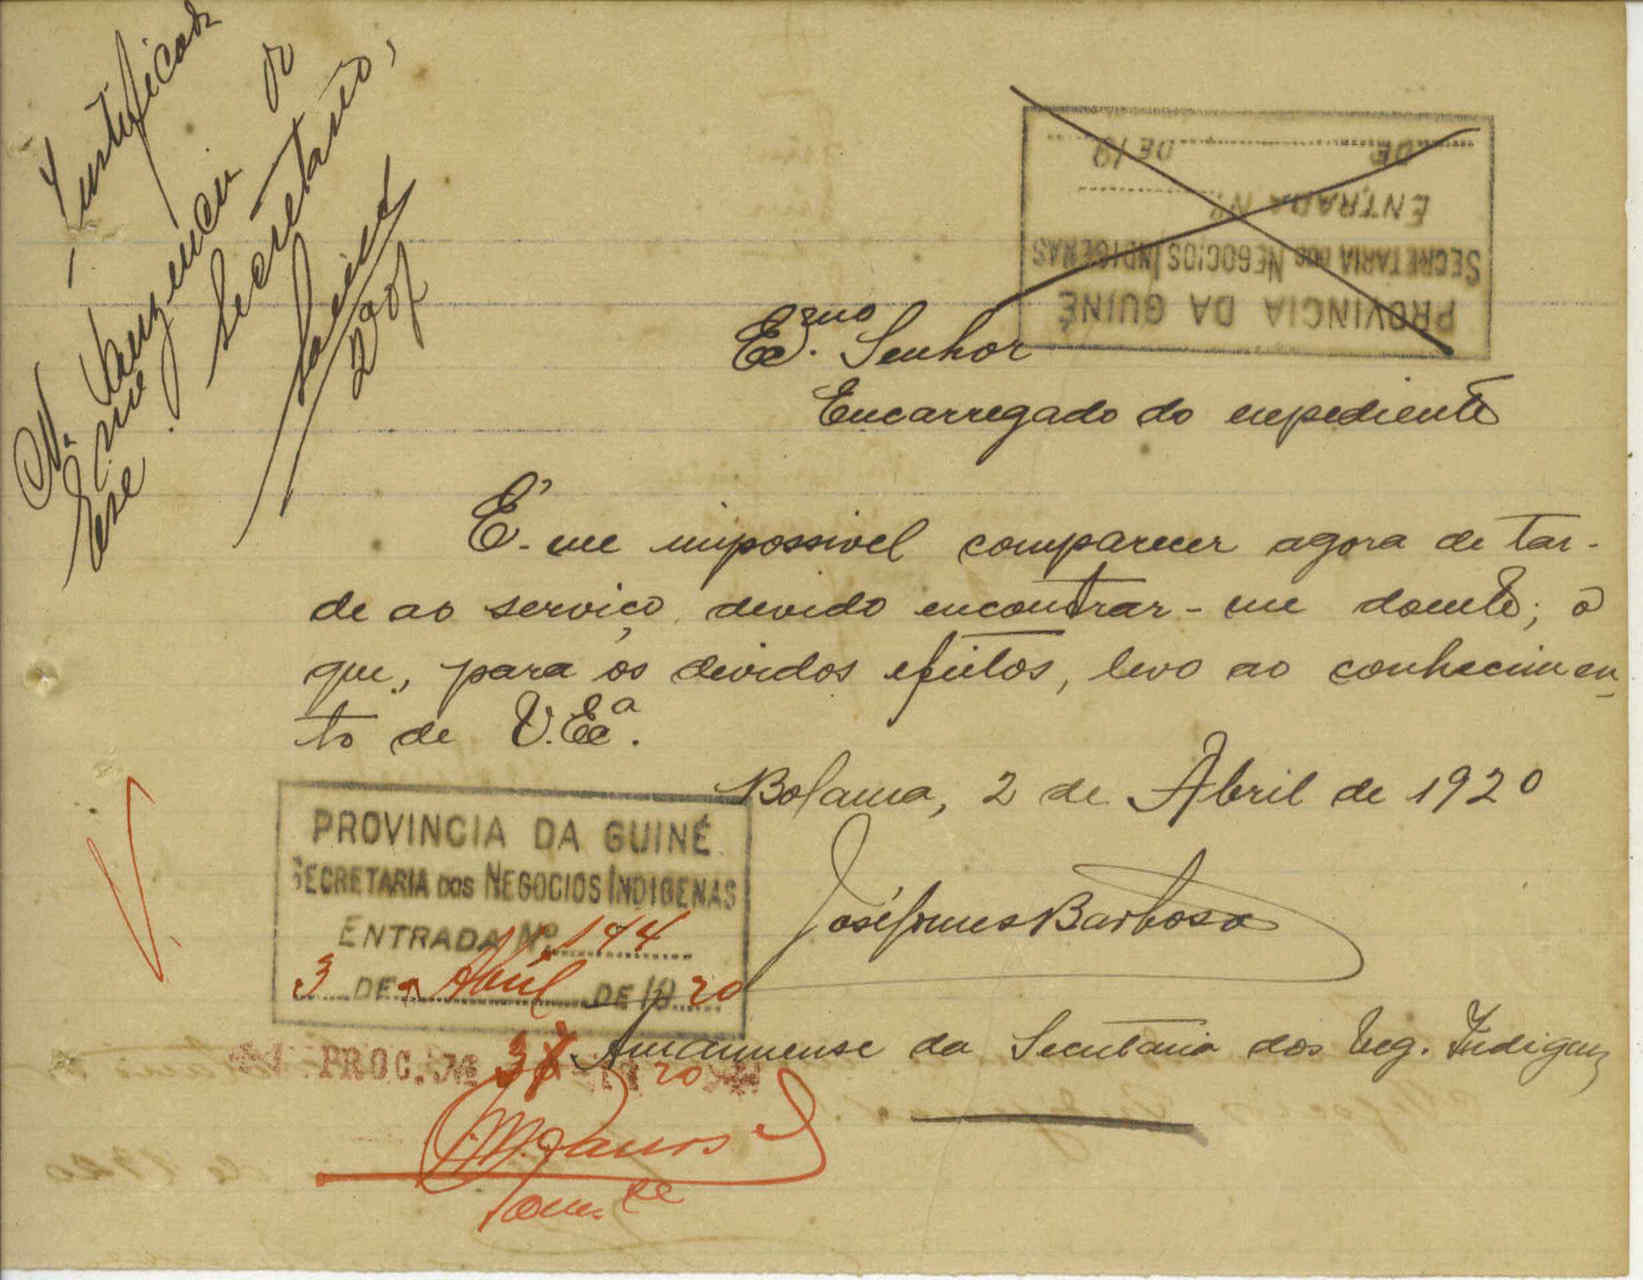 Justificada
N.ª Auzencia do
Secretario,
2 abl
PROVINCIA DA GUINÉ
SECRETARIA DOS NEGOCIOS INDIGENAS
ENTRADA Nº
DE DE 19
Exmo. Senhor
Encarregado do expediente
É-me impossivel comparecer agora de tar-
de ao serviço, devido encontrar-me doente; o
que, para os devidos efeitos, levo ao conhecimen-
to de V. Exª.
Bolama, 2 de Abril de 1920
José Gomes Barbosa
Amanuense da Secretaria dos Neg. Indigenas
PROVINCIA DA GUINÉ
SECRETARIA DOS NEGOCIOS INDIGENAS
ENTRADA Nº 144
3 DE Abril DE 1920
PROC. Nº 20